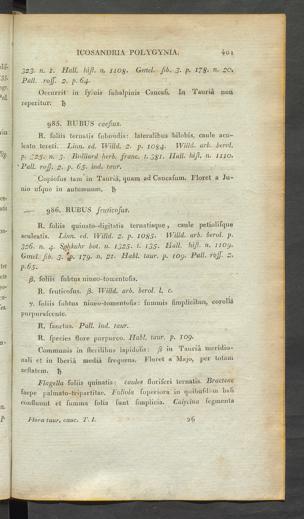 ICOSANDRIA POLYGYNIA. 401
323. n. 1. Hall. hist. n. 1108. Gmel. sib. 3. p. 178. n. 20.
Pall. ross. 2. p. 64.
Occurrit in sylvis subalpinis Caucasi. In Tauriâ non
reperitur. ♄
985. RUBUS caesius.
R. foliis ternatis subnudis: lateralibus bilobis, caule acu-
leato tereti. Linn. ed. Willd. 2. p. 1084. Willd. arb. berol.
p. 325. n. 3. Bulliard herb. franc. t. 381. Hall. hist. n. 1110.
Pall. ross. 2. p. 65. ind. taur.
Copiosus tam in Tauriâ, quam ad Caucasum. Floret a Ju-
nio usque in autumnum. ♄
986. RUBUS fruticosus.
R. foliis quinato-digitatis ternatisque, caule petiolisque
aculeatis. Linn. ed. Willd. 2. p. 1085. Willd. arb. berol. p.
326. n. 4. Schkuhr bot. n. 1325. t. 135. Hall. hist. n. 1109.
Gmel. sib. 3. p. 179. n. 21. Habl. taur. p. 109. Pall. ross. 2.
p. 65.
β. foliis subtus niueo-tomentosis.
R. fruticosus. β. Willd. arb. berol. l. c.
γ. foliis subtus niueo-tomentosis: summis simplicibus, corollâ
purpurascente.
R. sanctus. Pall. ind. taur.
R. species flore purpureo. Habl. taur. p. 109.
Communis in siccilibus lapidosis: β in Tauriâ meridio-
nali et in Iberiâ mediâ frequens. Floret a Majo, per totam
aestatem. ♄
Flagella foliis quinatis: caules floriferi ternatis. Bracteae
saepe palmato-tripartitae. Foliola superiora in quibusdam basi
confluunt et summa folia sunt simplicia. Calycina segmenta
Flora taur. cauc. T. I. 26